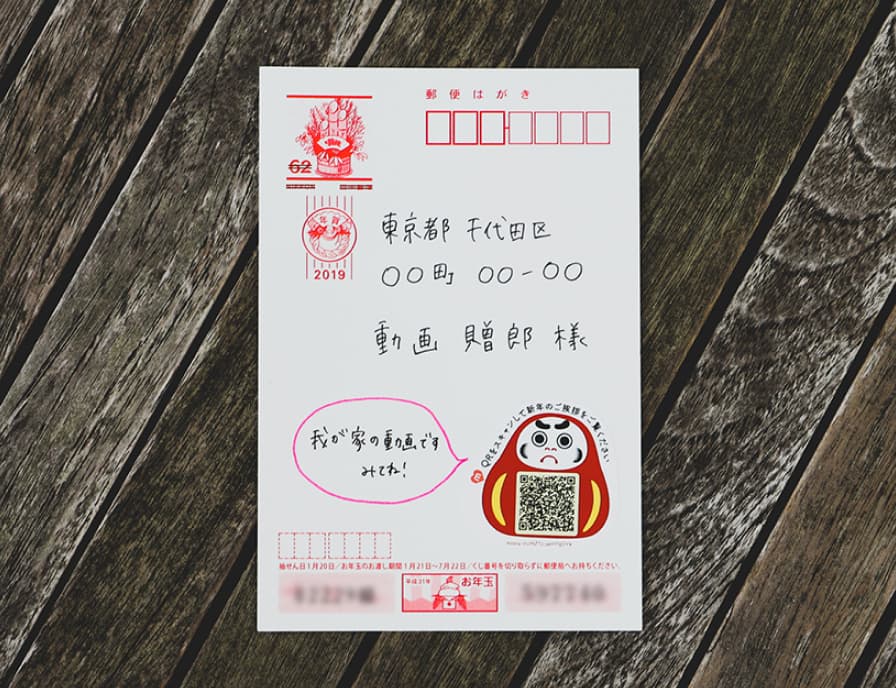 郵便はがき
62
年賀
2019
東京都 千代田区
〇〇町 〇〇-〇〇
動画 贈郎 様
QRをスキャンして新年のご挨拶をご覧ください
我が家の動画です
みてね!
抽せん日1月20日/お年玉のお渡し期間1月21日~7月22日/くじ番号を切り取らずに郵便局へお持ちください。
平成31年
お年玉